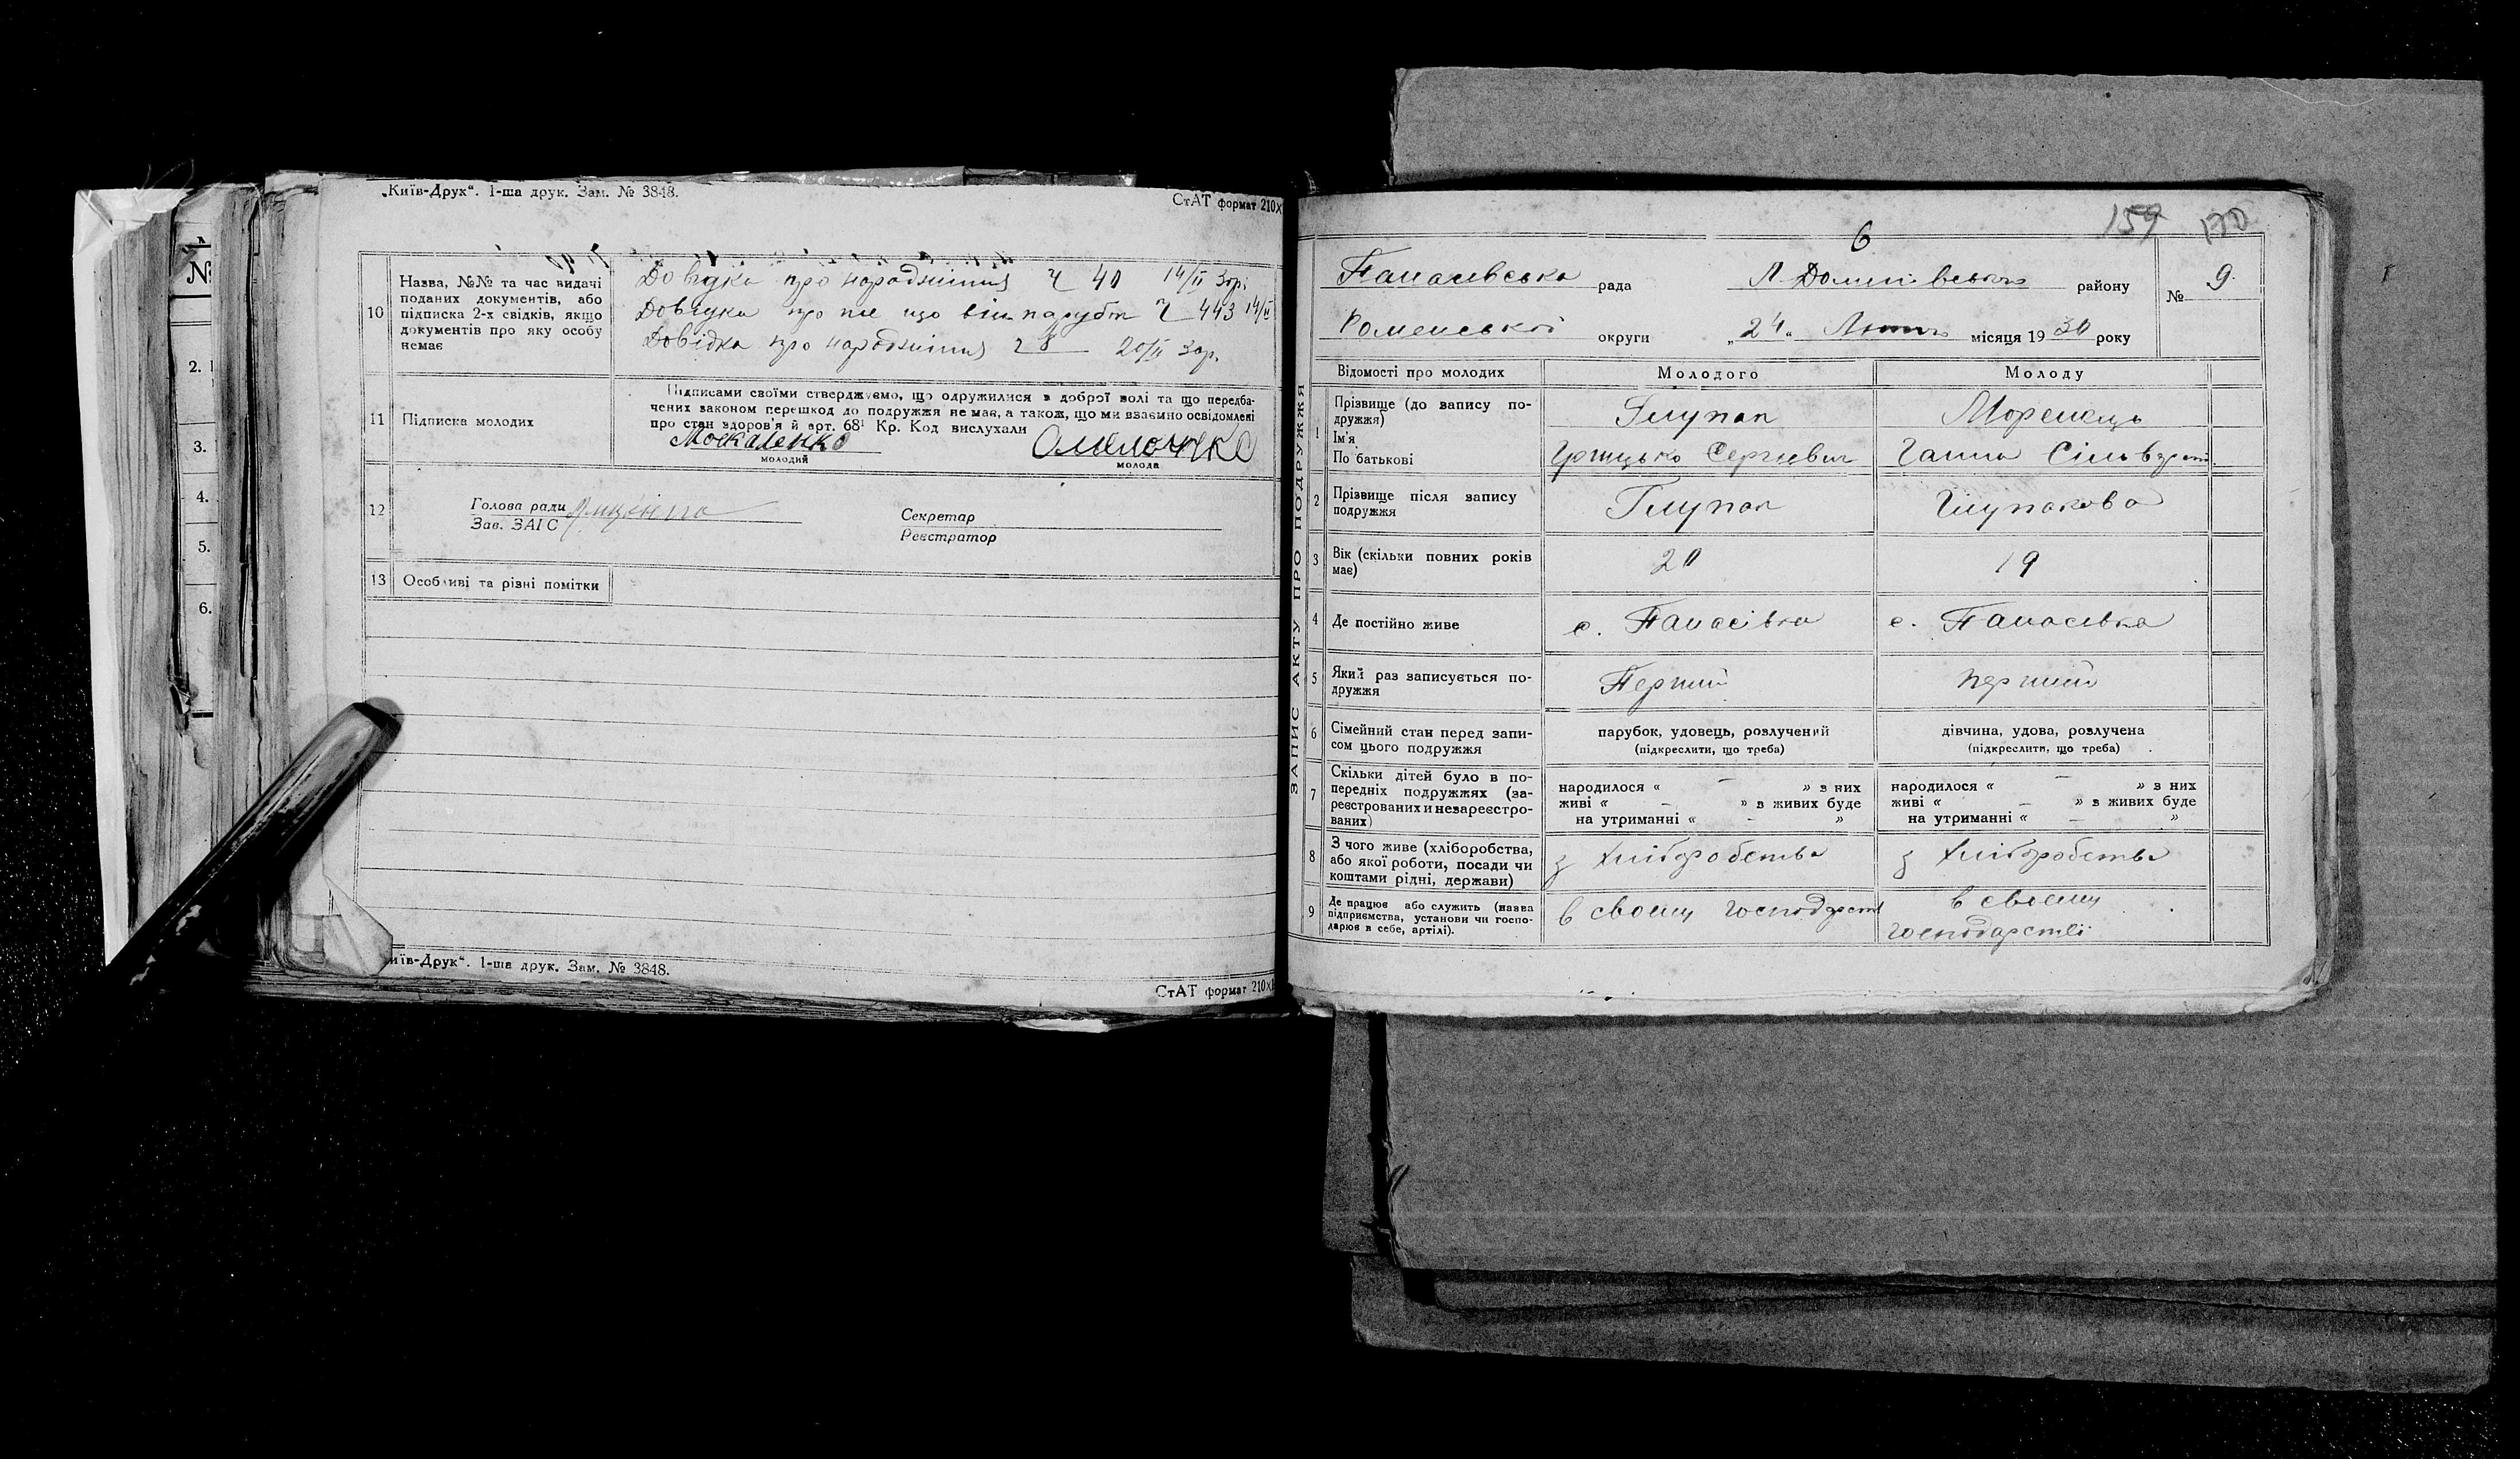 „Київ-Друк“. 1-ша друк. Зам. № 3848.
СтАТ формат 210х
10
Назва, №№ та час видачі
поданих документів, або
підписка 2-х свідків, якщо
документів про яку особу
немає
Довідка про народження Ч 40 14/II 30р.
Довідка про те що він парубок Ч 443 14/II
Довідка про народження Ч 8 20/II 30р.
11
Підписка молодих
Підписами своїми стверджуємо, що одружилися з доброї волі та що передба-
чених законом перешкод до подружжя не має, а також, що ми взаємно освідомлені
про стан здоров'я й арт. 68¹ Кр. Код вислухали
Москаленко
молодий
молода
12
Голова ради
Зав. ЗАГС
Секретар
Реєстратор
13
Особливі та різні помітки
иїв-Друк“. 1-ша друк. Зам. № 3848.
СтАТ формат 210х
№
2.
3.
4.
5.
6.
159 170
6
Панасівська рада
району
№ 9.
Роменської округи
„24“ Лютого місяця 1930 року
ЗАПИС АКТУ ПРО ПОДРУЖЖЯ
Відомості про молодих
Молодого
Молоду
1
Прізвище (до запису по-
дружжя)
Ім'я
По батькові
Глупак
Грицько Сергієвич
Моренець
Ганна
2
Прізвище після запису
подружжя
Глупак
Глупакова
3
Вік (скільки повних років
має)
20
19
4
Де постійно живе
с. Панасівка
с. Панасівка
5
Який раз записується по-
дружжя
Перший
перший
6
Сімейний стан перед запи-
сом цього подружжя
парубок, удовець, розлучений
(підкреслити, що треба)
дівчина, удова, розлучена
(підкреслити, що треба)
7
Скільки дітей було в по-
передніх подружжях (за-
реєстрованих и незареєстро-
ваних)
народилося « — » з них
живі « — » з живих буде
на утриманні « — »
народилося « — » з них
живі « — » з живих буде
на утриманні « — »
8
З чого живе (хліборобства,
або якої роботи, посади чи
коштами рідні, держави)
з хліборобства
з хліборобства
9
Де працює або служить (назва
підприємства, установи чи госпо-
дарює в себе, артілі).
в своєму господарстві
в своєму
господарстві